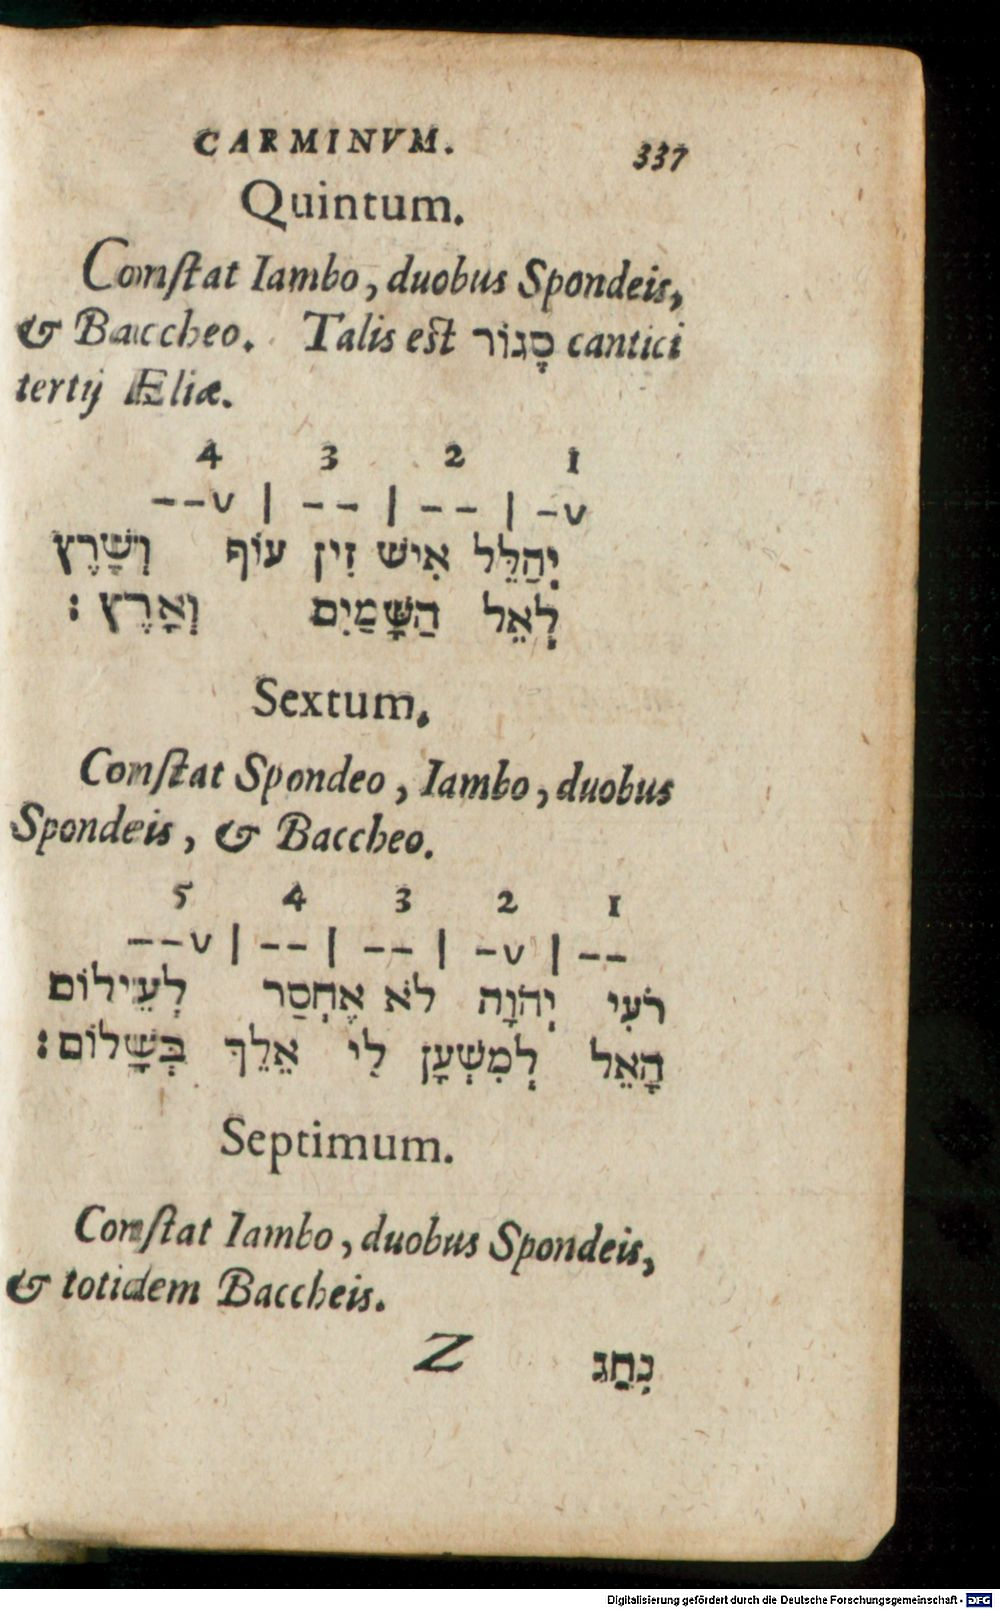 CARMINVM. 337
Quintum.
Conſtat Iambo, duobus Spondeis,
& Baccheo. Talis est סָגוֹר cantici
tertij Æliæ.
4 3 2 1
--v | -- | -- | -v
יְהַלֵּל אִישׁ זִין עוֹף וְשָׁרֶץ
לְאֵל הַשָּׁמַיִם וְאָרֶץ :
Sextum.
Conſtat Spondeo, Iambo, duobus
Spondeis, & Baccheo.
5 4 3 2 1
--v | -- | -- | -v | --
רֹעִי יְהוָה לֹא אֶחְסַר לְעֵילוֹם
הָאֵל לְמִשְׁעָן לִי אֵלֵךְ בְּשָׁלוֹם :
Septimum.
Conſtat Iambo, duobus Spondeis,
& totidem Baccheis.
Z נְחַג
Digitalisierung gefördert durch die Deutsche Forschungsgemeinschaft - DFG